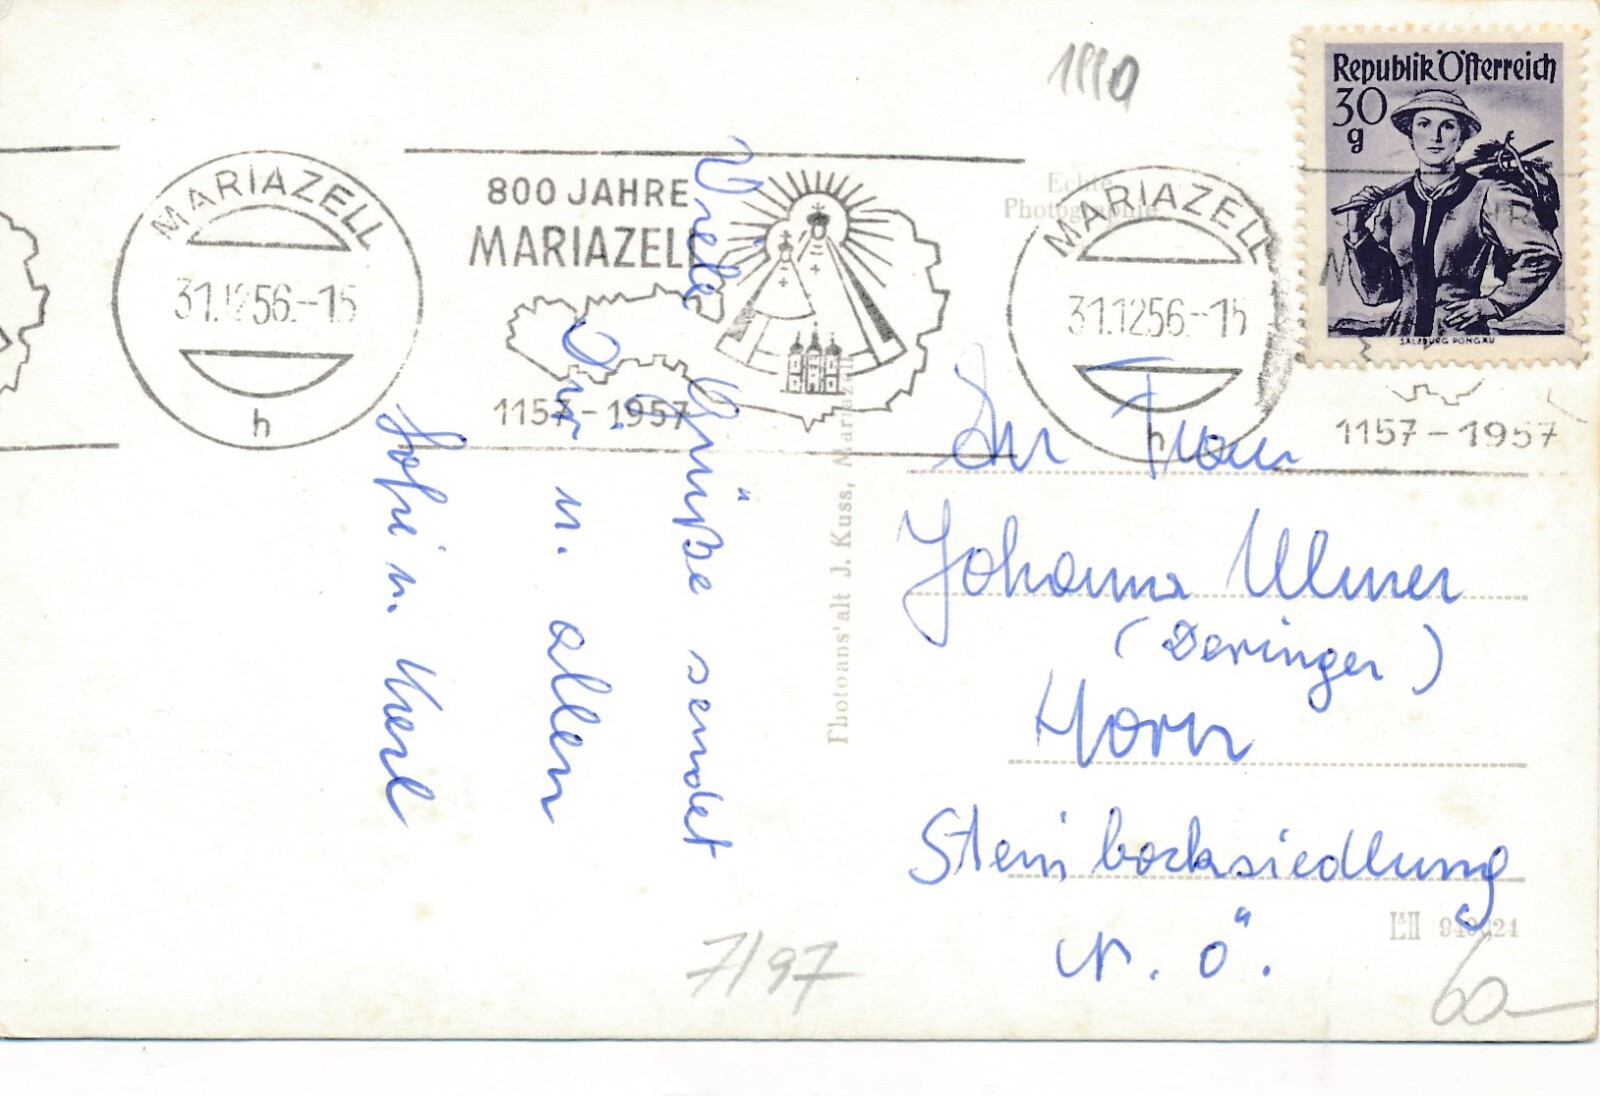 1110
Republik Österreich
30
g
SALZBURG PONGAU
MARIAZELL
31.12.56.-15
h
800 JAHRE
MARIAZELL
1157-1957
Echte
Photographie
MARIAZELL
31.12.56.-15
h
1157-1957
Viele Grüße sendet
Dir u. allen
u. Karl
Photoanstalt J. Kuss, Mariazell
Frau
Johanna Ulmer
(Deringer)
Horn
Steinbocksiedlung
N.Ö.
7/97
60-